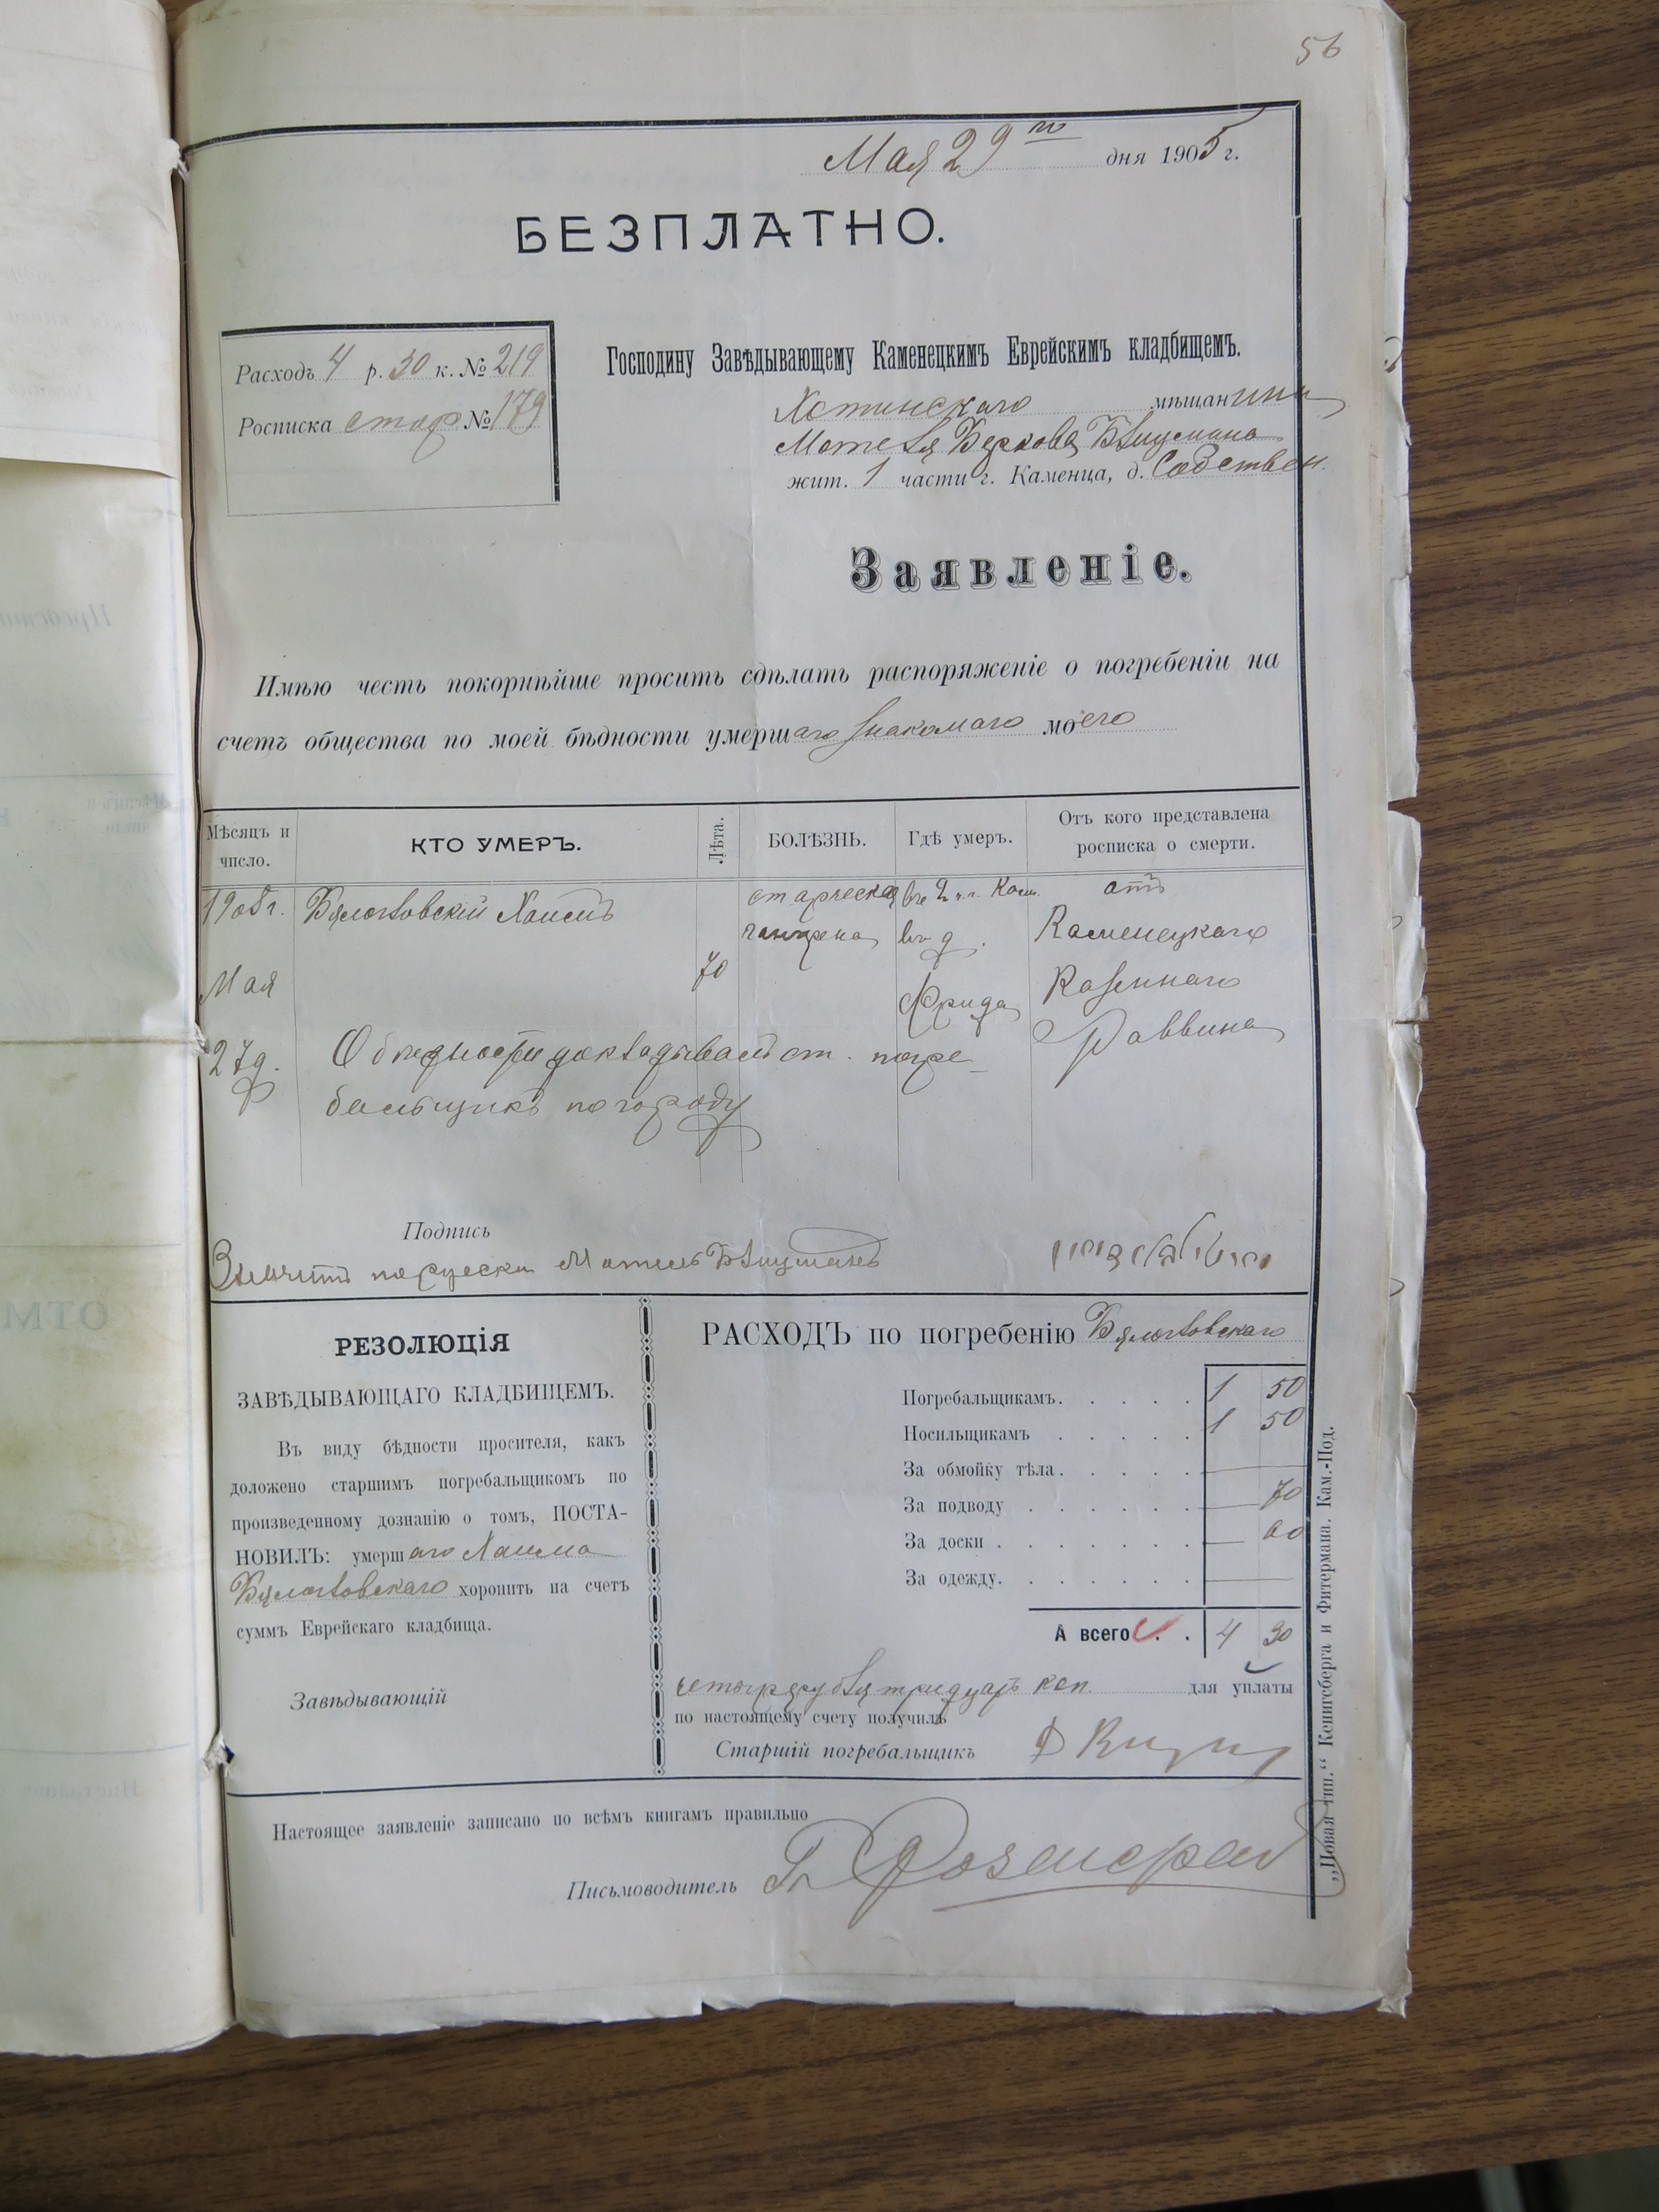 56
Мая 29 го дня 1905 г.
БЕЗПЛАТНО.
Расходъ 4 р. 30 к. № 219
Росписка стар № 179
Господину Завѣдывающему Каменецкимъ Еврейскимъ кладбищемъ.
Хотинскаго мѣщанина
Мотеля Беркова
жит. 1 части г. Каменца, д. Собствен.
Заявленіе.
Имѣю честь покорнѣйше просить сдѣлать распоряженіе о погребеніи на
счетъ общества по моей бѣдности умершаго знакомаго моего
Мѣсяцъ и число.
КТО УМЕРЪ.
Лѣта.
БОЛѢЗНЬ.
Гдѣ умеръ.
Отъ кого представлена росписка о смерти.
1905 г.
Мая
27 д.
Хаимъ
70
старческая
гангрена
въ 2 ч. г. Кам.
въ д.
Фрида
отъ
Каменецкаго
Казеннаго
Раввина
О бедности докладывает ст. погре-
бальщикъ по городу
Подпись
Значитъ порусски Мотель
РЕЗОЛЮЦІЯ
ЗАВѢДЫВАЮЩАГО КЛАДБИЩЕМЪ.
Въ виду бѣдности просителя, какъ
доложено старшимъ погребальщикомъ по
произведенному дознанію о томъ, ПОСТА-
НОВИЛЪ: умершаго Хаима
хоронить на счетъ
суммъ Еврейскаго кладбища.
Завѣдывающій
РАСХОДЪ по погребенію
Погребальщикамъ. . . . . 1 50
Носильщикамъ . . . . . 1 50
За обмойку тѣла. . . . . —
За подводу . . . . . . — 70
За доски . . . . . . . — 60
За одежду. . . . . . . —
А всего . . 4 30
четыре рубля тридцать коп. для уплаты
по настоящему счету получилъ
Старшій погребальщикъ
Настоящее заявленіе записано по всѣмъ книгамъ правильно
Письмоводитель
„Новая тип.“ Кенигсберга и Фитермана. Кам.-Под.